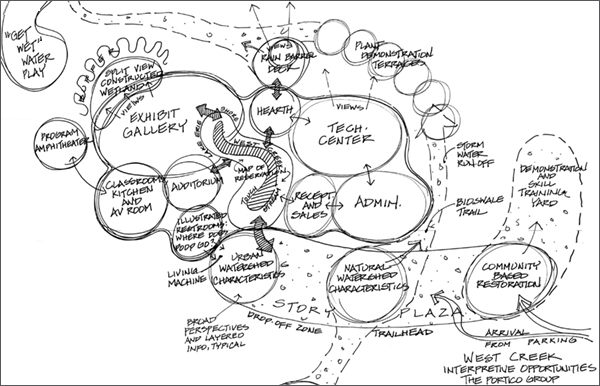 "GET
WET"
WATER
PLAY
SPLIT VIEW
CONSTRUCTED
WETLAND
VIEWS
VIEWS
RAIN BARREL
DECK
PLANT
DEMONSTRATION
TERRACES
EXHIBIT
GALLERY
HEARTH
VIEWS
TECH.
CENTER
PROGRAM
AMPHITHEATER
MAP OF
RESERVATION
STORM
WATER
RUN-OFF
CLASSROOM
KITCHEN
AND
AV ROOM
AUDITORIUM
TOUCH
RECEPT
AND
SALES
ADMIN.
BIOSWALE
TRAIL
DEMONSTRATION
AND
SKILL
TRAINING
YARD
ILLUSTRATED
RESTROOMS:
WHERE DOES
POOP GO?
LIVING
MACHINE
URBAN
WATERSHED
CHARACTERISTICS
NATURAL
WATERSHED
CHARACTERISTICS
COMMUNITY
BASED
RESTORATION
STORY PLAZA
BROAD
PERSPECTIVES
AND LAYERED
INFO, TYPICAL
DROP-OFF ZONE
TRAILHEAD
ARRIVAL
FROM PARKING
WEST CREEK
INTERPRETIVE OPPORTUNITIES
THE PORTICO GROUP